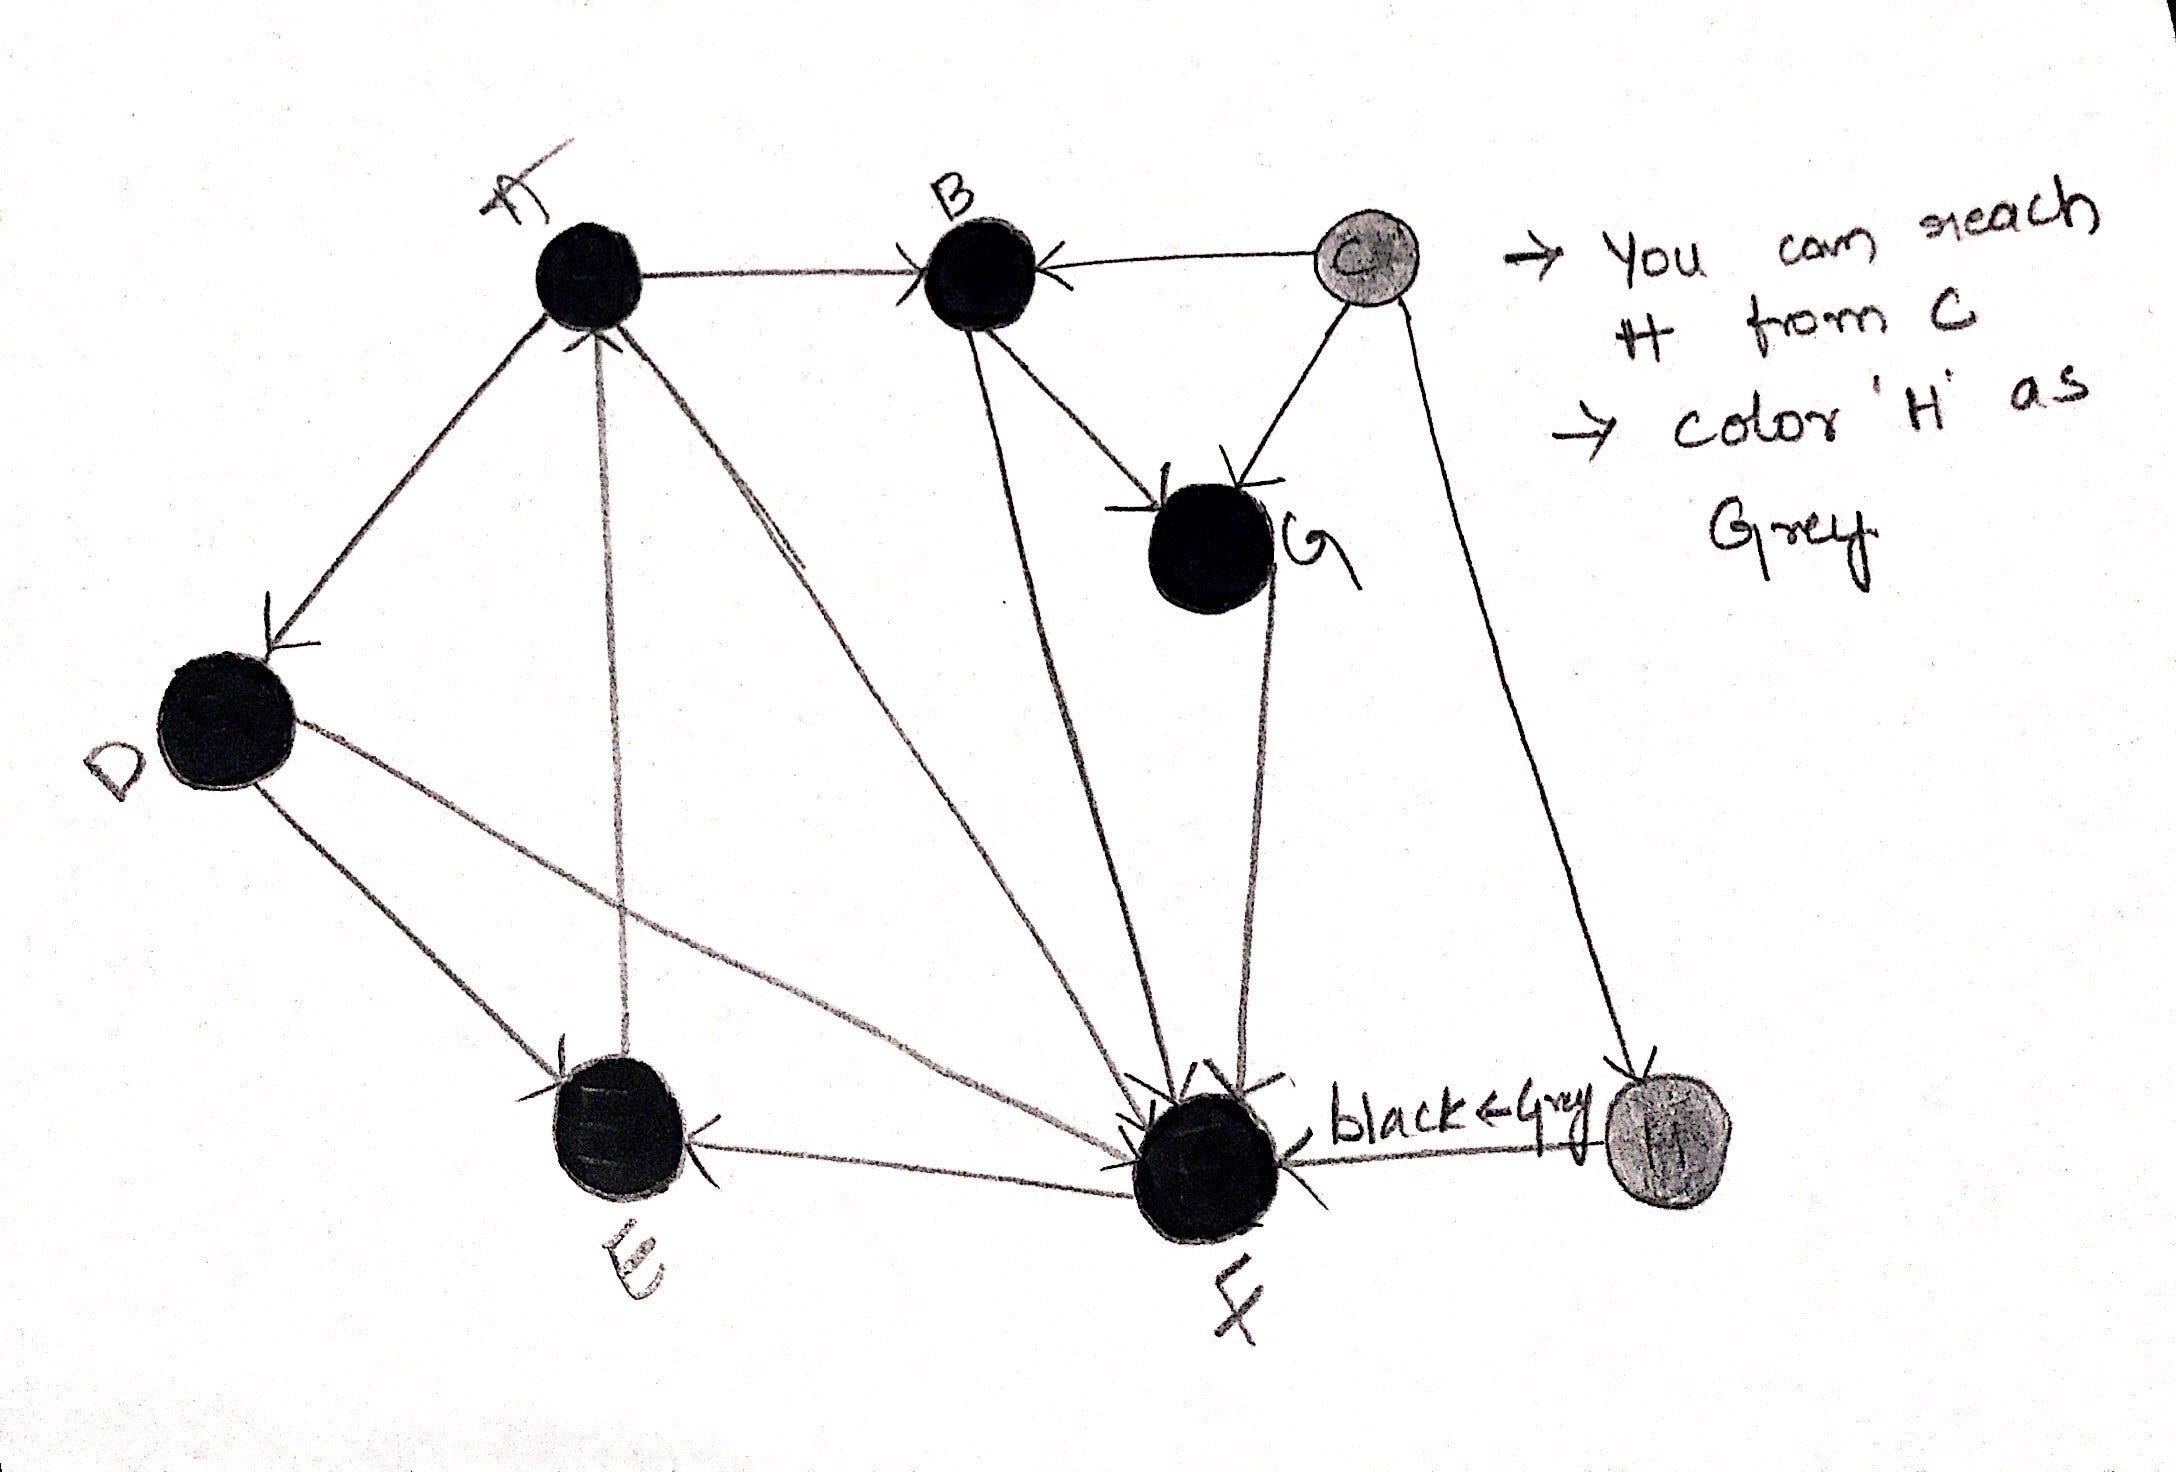 A
B
C
→ You can reach
H from C
→ color 'H' as
Grey
G
D
black ← Grey
H
E
F